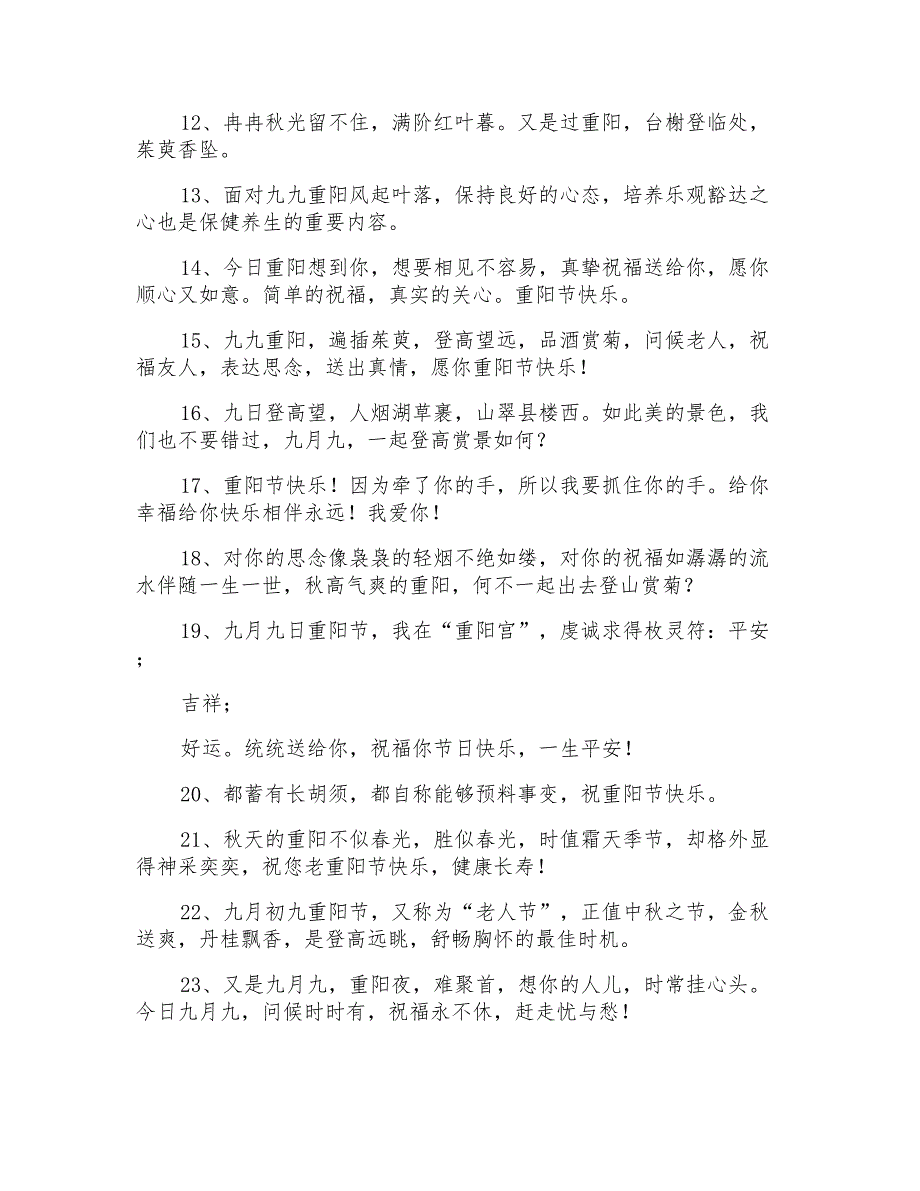 12、冉冉秋光留不住，满阶红叶暮。又是过重阳，台榭登临处，
茱萸香坠。
13、面对九九重阳风起叶落，保持良好的心态，培养乐观豁达之
心也是保健养生的重要内容。
14、今日重阳想到你，想要相见不容易，真挚祝福送给你，愿你
顺心又如意。简单的祝福，真实的关心。重阳节快乐。
15、九九重阳，遍插茱萸，登高望远，品酒赏菊，问候老人，祝
福友人，表达思念，送出真情，愿你重阳节快乐！
16、九日登高望，人烟湖草裹，山翠县楼西。如此美的景色，我
们也不要错过，九月九，一起登高赏景如何？
17、重阳节快乐！因为牵了你的手，所以我要抓住你的手。给你
幸福给你快乐相伴永远！我爱你！
18、对你的思念像袅袅的轻烟不绝如缕，对你的祝福如潺潺的流
水伴随一生一世，秋高气爽的重阳，何不一起出去登山赏菊？
19、九月九日重阳节，我在“重阳宫”，虔诚求得枚灵符：平安
；
吉祥；
好运。统统送给你，祝福你节日快乐，一生平安！
20、都蓄有长胡须，都自称能够预料事变，祝重阳节快乐。
21、秋天的重阳不似春光，胜似春光，时值霜天季节，却格外显
得神采奕奕，祝您老重阳节快乐，健康长寿！
22、九月初九重阳节，又称为“老人节”，正值中秋之节，金秋
送爽，丹桂飘香，是登高远眺，舒畅胸怀的最佳时机。
23、又是九月九，重阳夜，难聚首，想你的人儿，时常挂心头。
今日九月九，问候时时有，祝福永不休，赶走忧与愁！